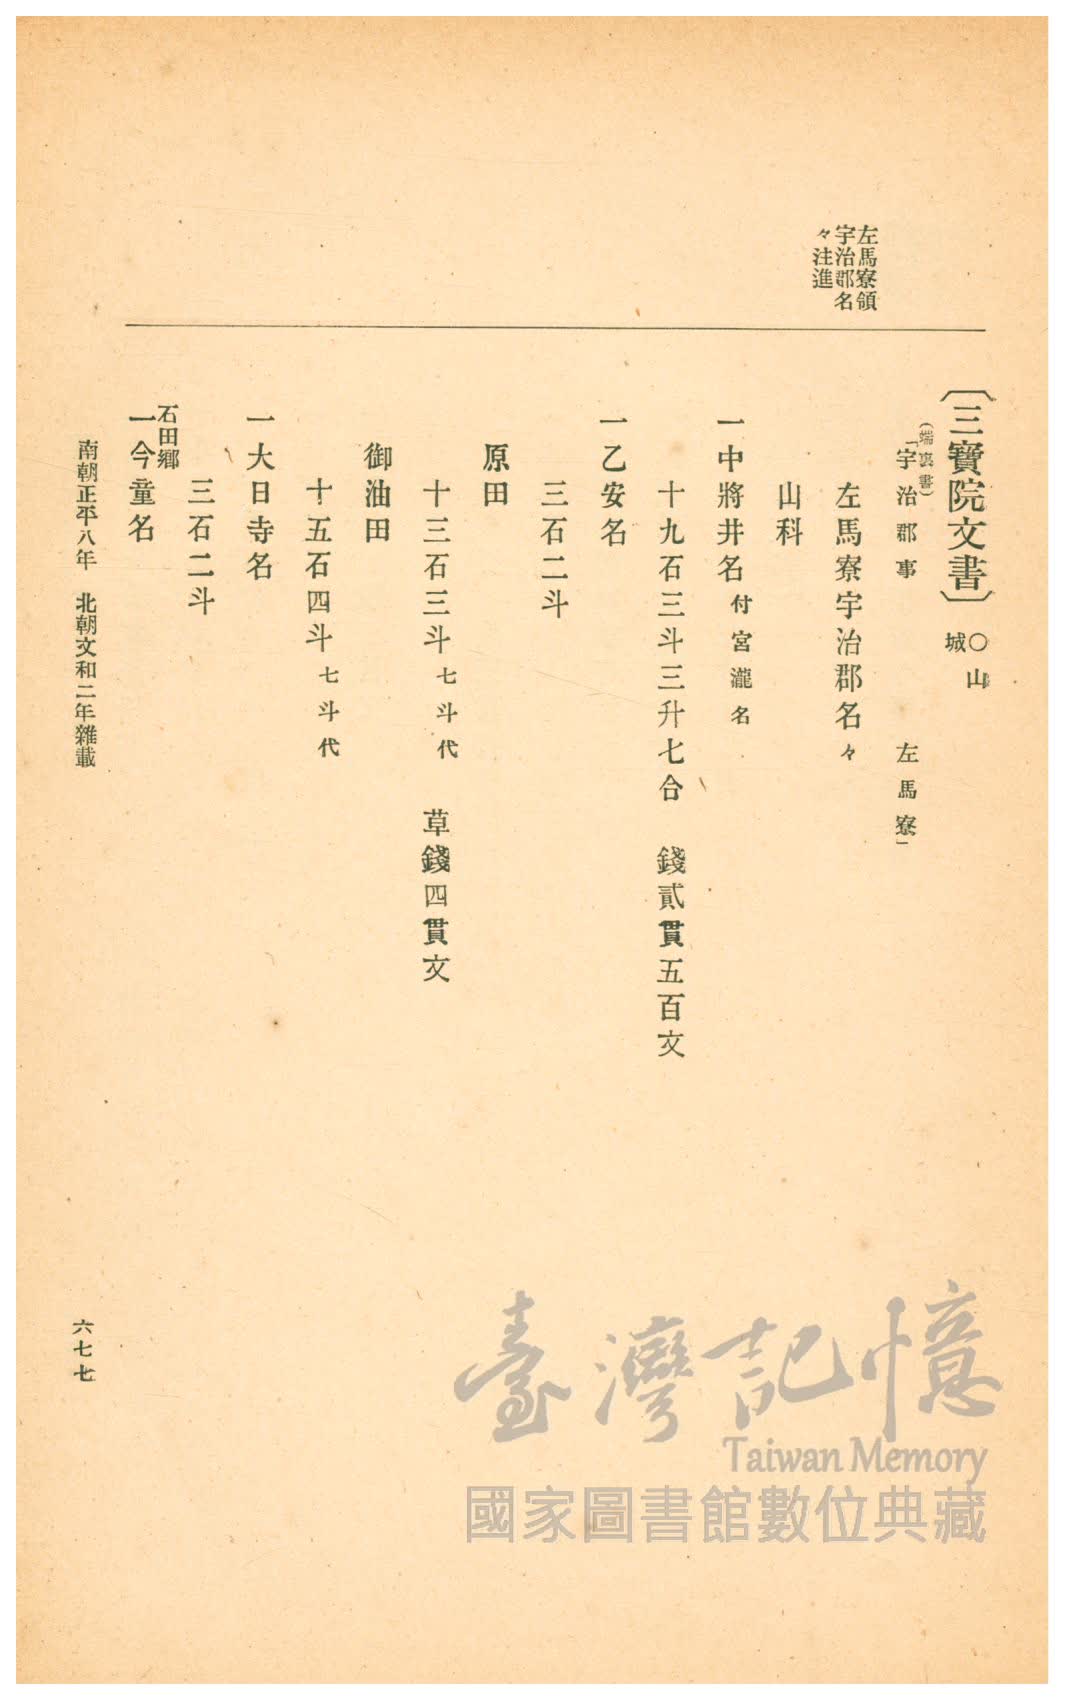 左馬寮領
宇治郡名
々注進
〔三寶院文書〕〇山
城
(端裏書)
「宇治郡事　左馬寮」
左馬寮宇治郡名々
山科
一中將井名付宮瀧名
十九石三斗三升七合　錢貳貫五百文
一乙安名
三石二斗
原田
十三石三斗七斗代　草錢四貫文
御油田
十五石四斗七斗代
一大日寺名
三石二斗
石田鄉
一今童名
南朝正平八年　北朝文和二年雜載
六七七
臺灣記憶
Taiwan Memory
國家圖書館數位典藏